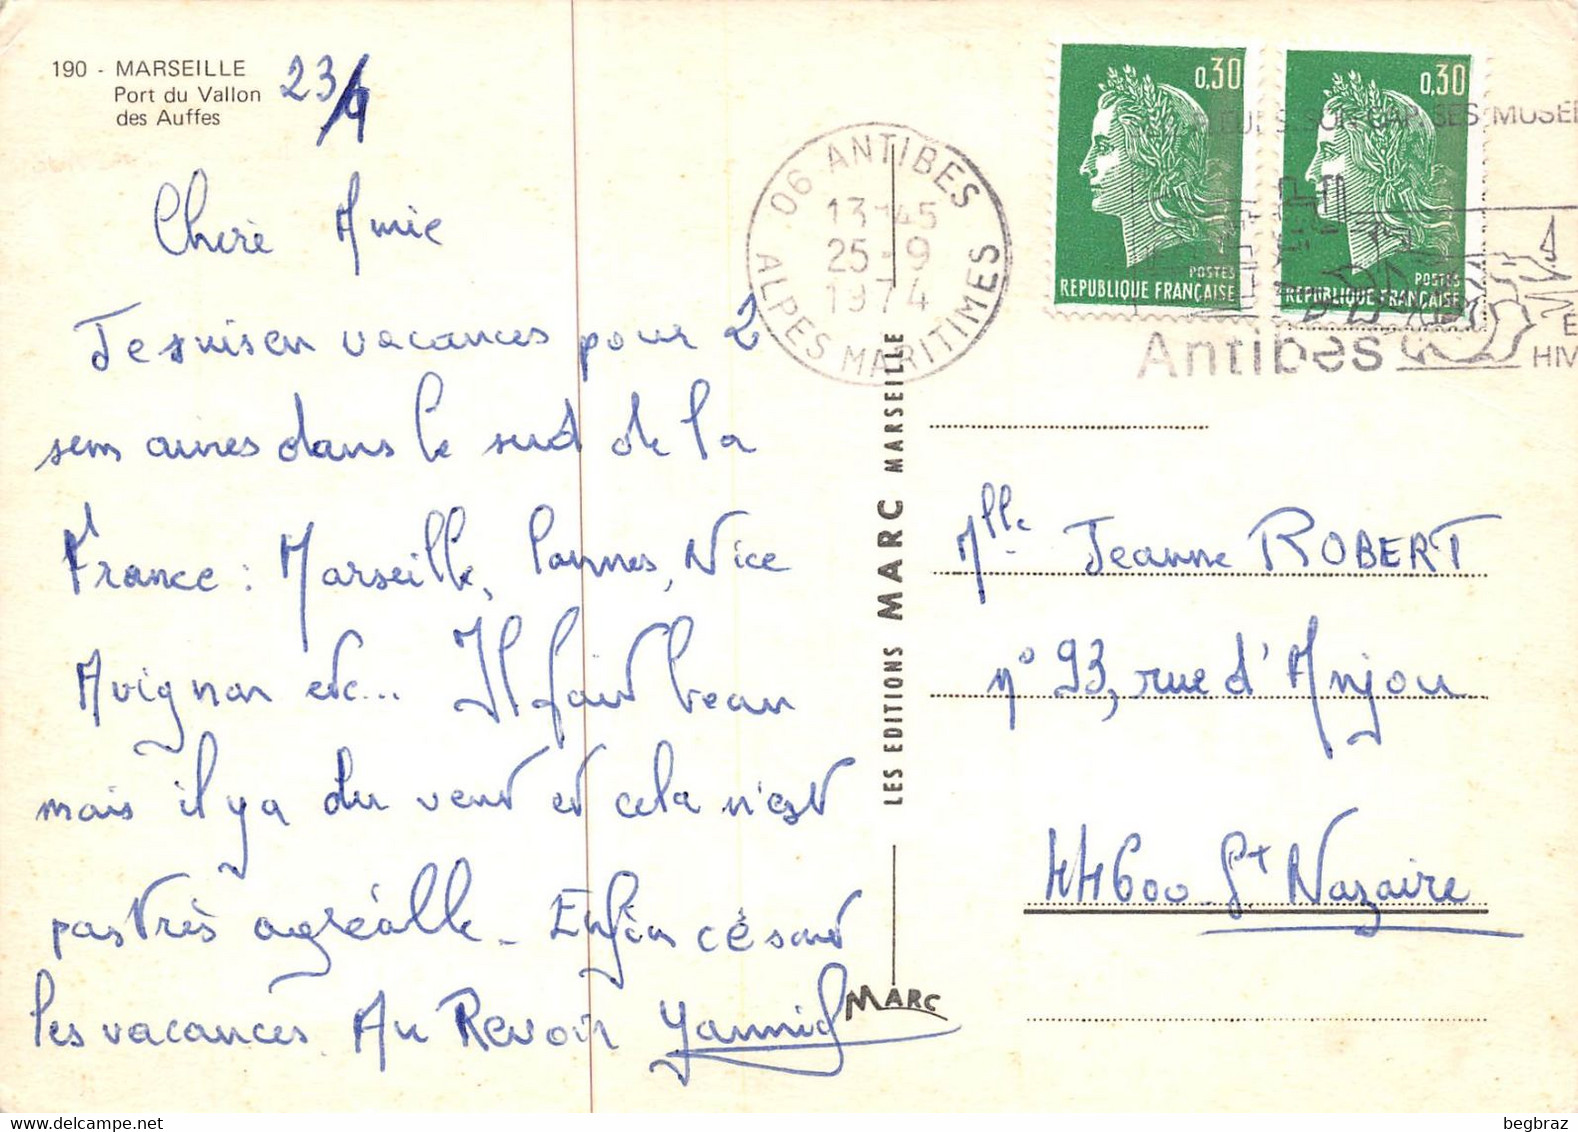 190 - MARSEILLE
Port du Vallon
des Auffes
23/9
Chere Amie
Je suis en vacances pour 2
semaines dans le sud de la
France : Marseille, Cannes, Nice
Avignon etc... Il fait beau
mais il y a du vent et cela n'est
pas très agréable - Enfin ce sont
les vacances. Au Revoir Yannick
06 ANTIBES
13-45
25-9
1974
ALPES MARITIMES
0,30
POSTES
REPUBLIQUE FRANÇAISE
0,30
POSTES
REPUBLIQUE FRANÇAISE
SES MUSEE
Antibes
HIV
LES EDITIONS MARC MARSEILLE
MARC
Mlle Jeanne ROBERT
n° 93, rue d'Anjou
44600 - St Nazaire
begbraz